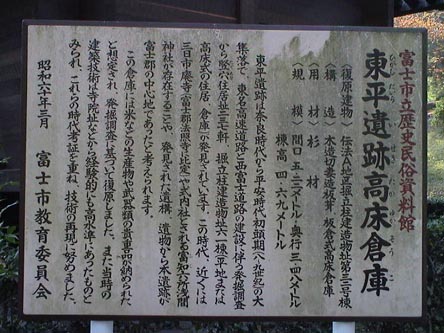 富士市立歴史民俗資料館
東平遺跡高床倉庫
〈復原建物〉 伝法A地区掘立柱建造物址第三号棟
〈構造〉 木造切妻造板葺 板倉式高床倉庫
〈用材〉 杉材
〈規模〉 間口 五・二三メートル 奥行 三・四八メートル
棟高 四・六九メートル
東平遺跡は奈良時代から平安時代初頭期(八～九世紀)の大
集落で、東名高速道路と西富士道路の建設に伴う発掘調査
から竪穴住居址 掘立柱建造物址 平地または
高床式の住居、倉庫が発見されています。この時代、近くには
三日市廃寺(富士郡法照寺に比定)や式内社とされる富知六所浅間
神社が存在することや、発見された遺構、遺物から本遺跡が
富士郡の中心地であったと考えられます。
この倉庫には米などの生産物や武器類の貴重品が納められた
と想定され、発掘調査に基づいて復原しました。また当時の
建築技術は寺院址などから経験的にも高水準にあったものと
みられ、これらの時代考証を重ね、技術の再現に努めました。
昭和六十年三月 富士市教育委員会